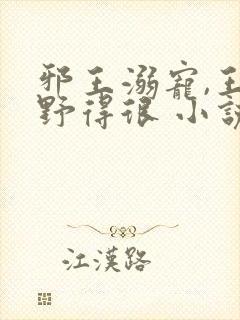 邪王溺寵,王
野得很 小說
江漢路